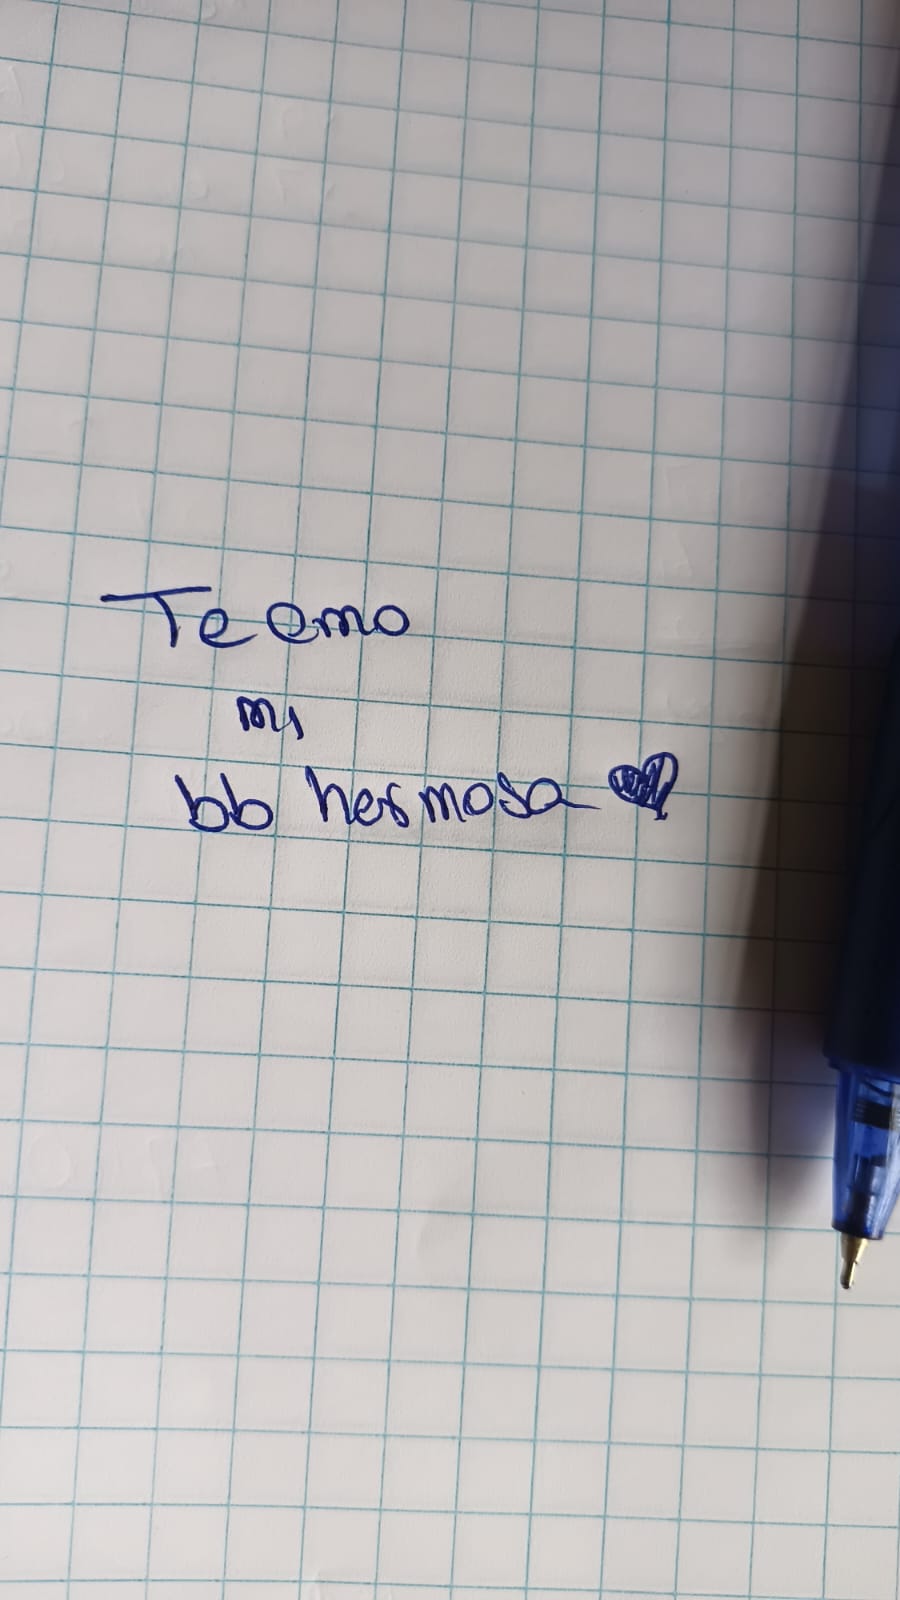 Te amo
mi
bb hermosa ♥